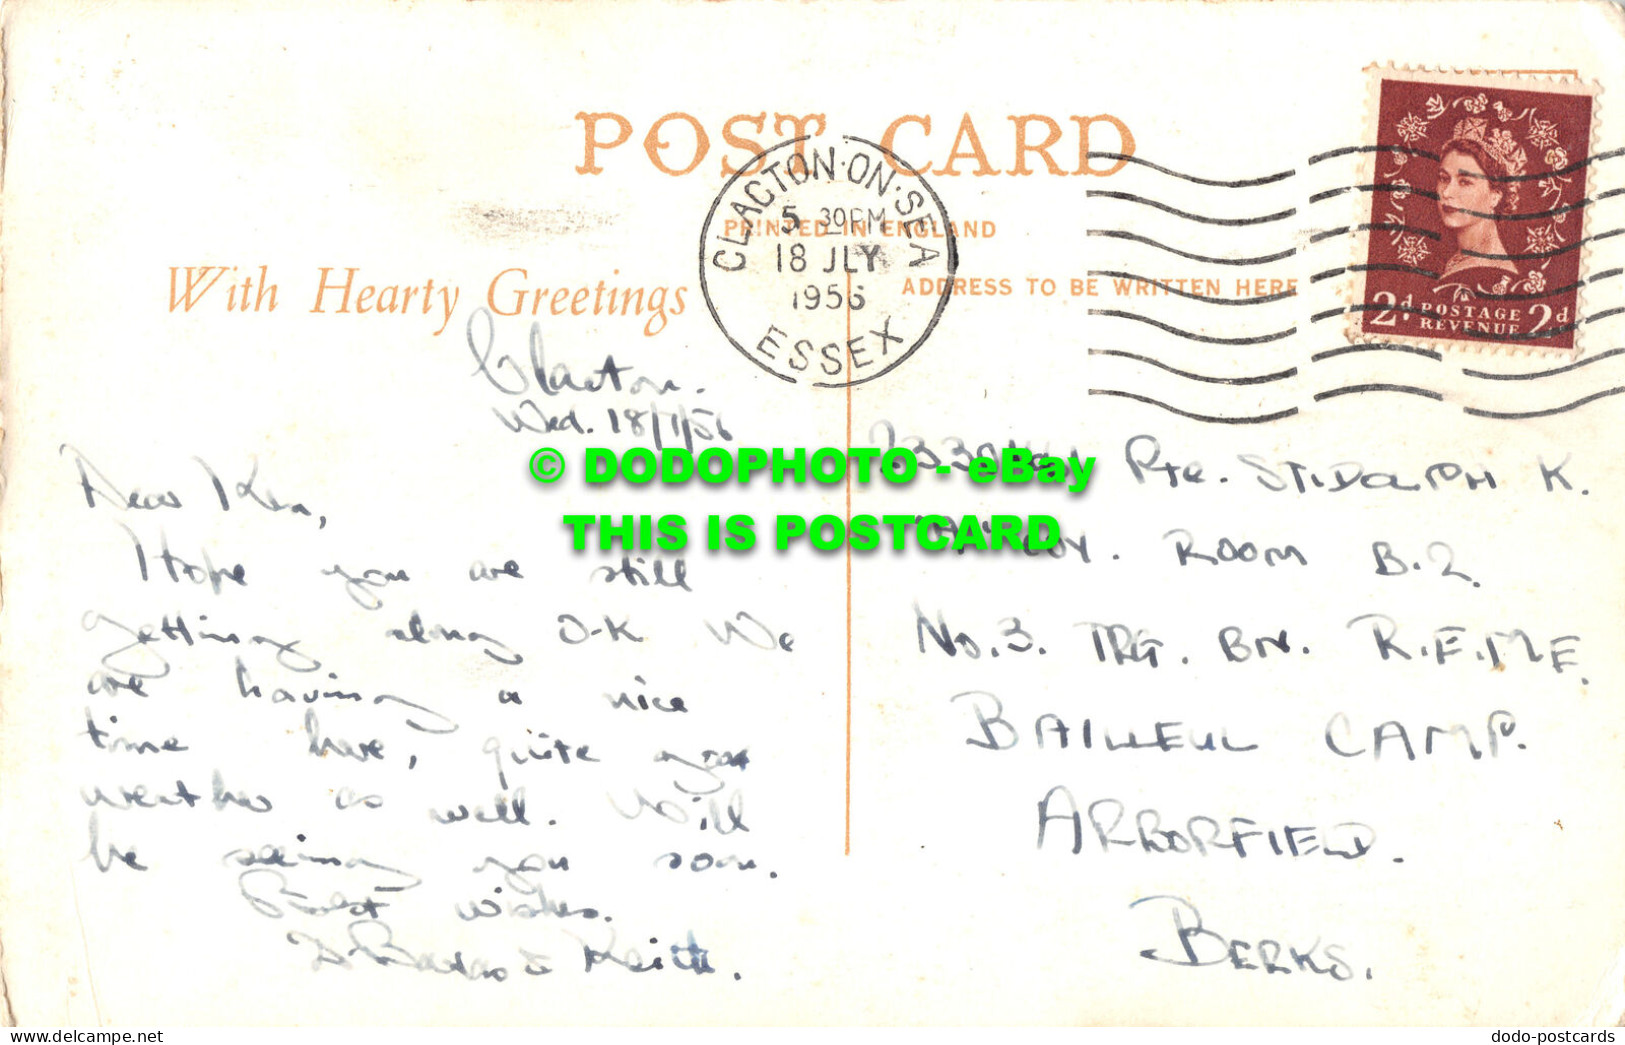 POST CARD
PRINTED IN ENGLAND
With Hearty Greetings
ADDRESS TO BE WRITTEN HERE
CLACTON·ON·SEA
5 30PM
18 JLY
1956
ESSEX
2d POSTAGE REVENUE 2d
Clacton.
Wed. 18/7/56
Dear Ken,
Hope you are still
getting along O-K We
are having a nice
time here, quite good
weather as well. Will
be seeing you soon.
Best wishes.
Keith.
Pte. STIDOLPH K.
"A" COY. ROOM B.2.
No.3. TRG. BN. R.E.M.E.
BAILLEUL CAMP.
ARBORFIELD.
BERKS.
© DODOPHOTO - eBay
THIS IS POSTCARD
www.delcampe.net
dodo-postcards